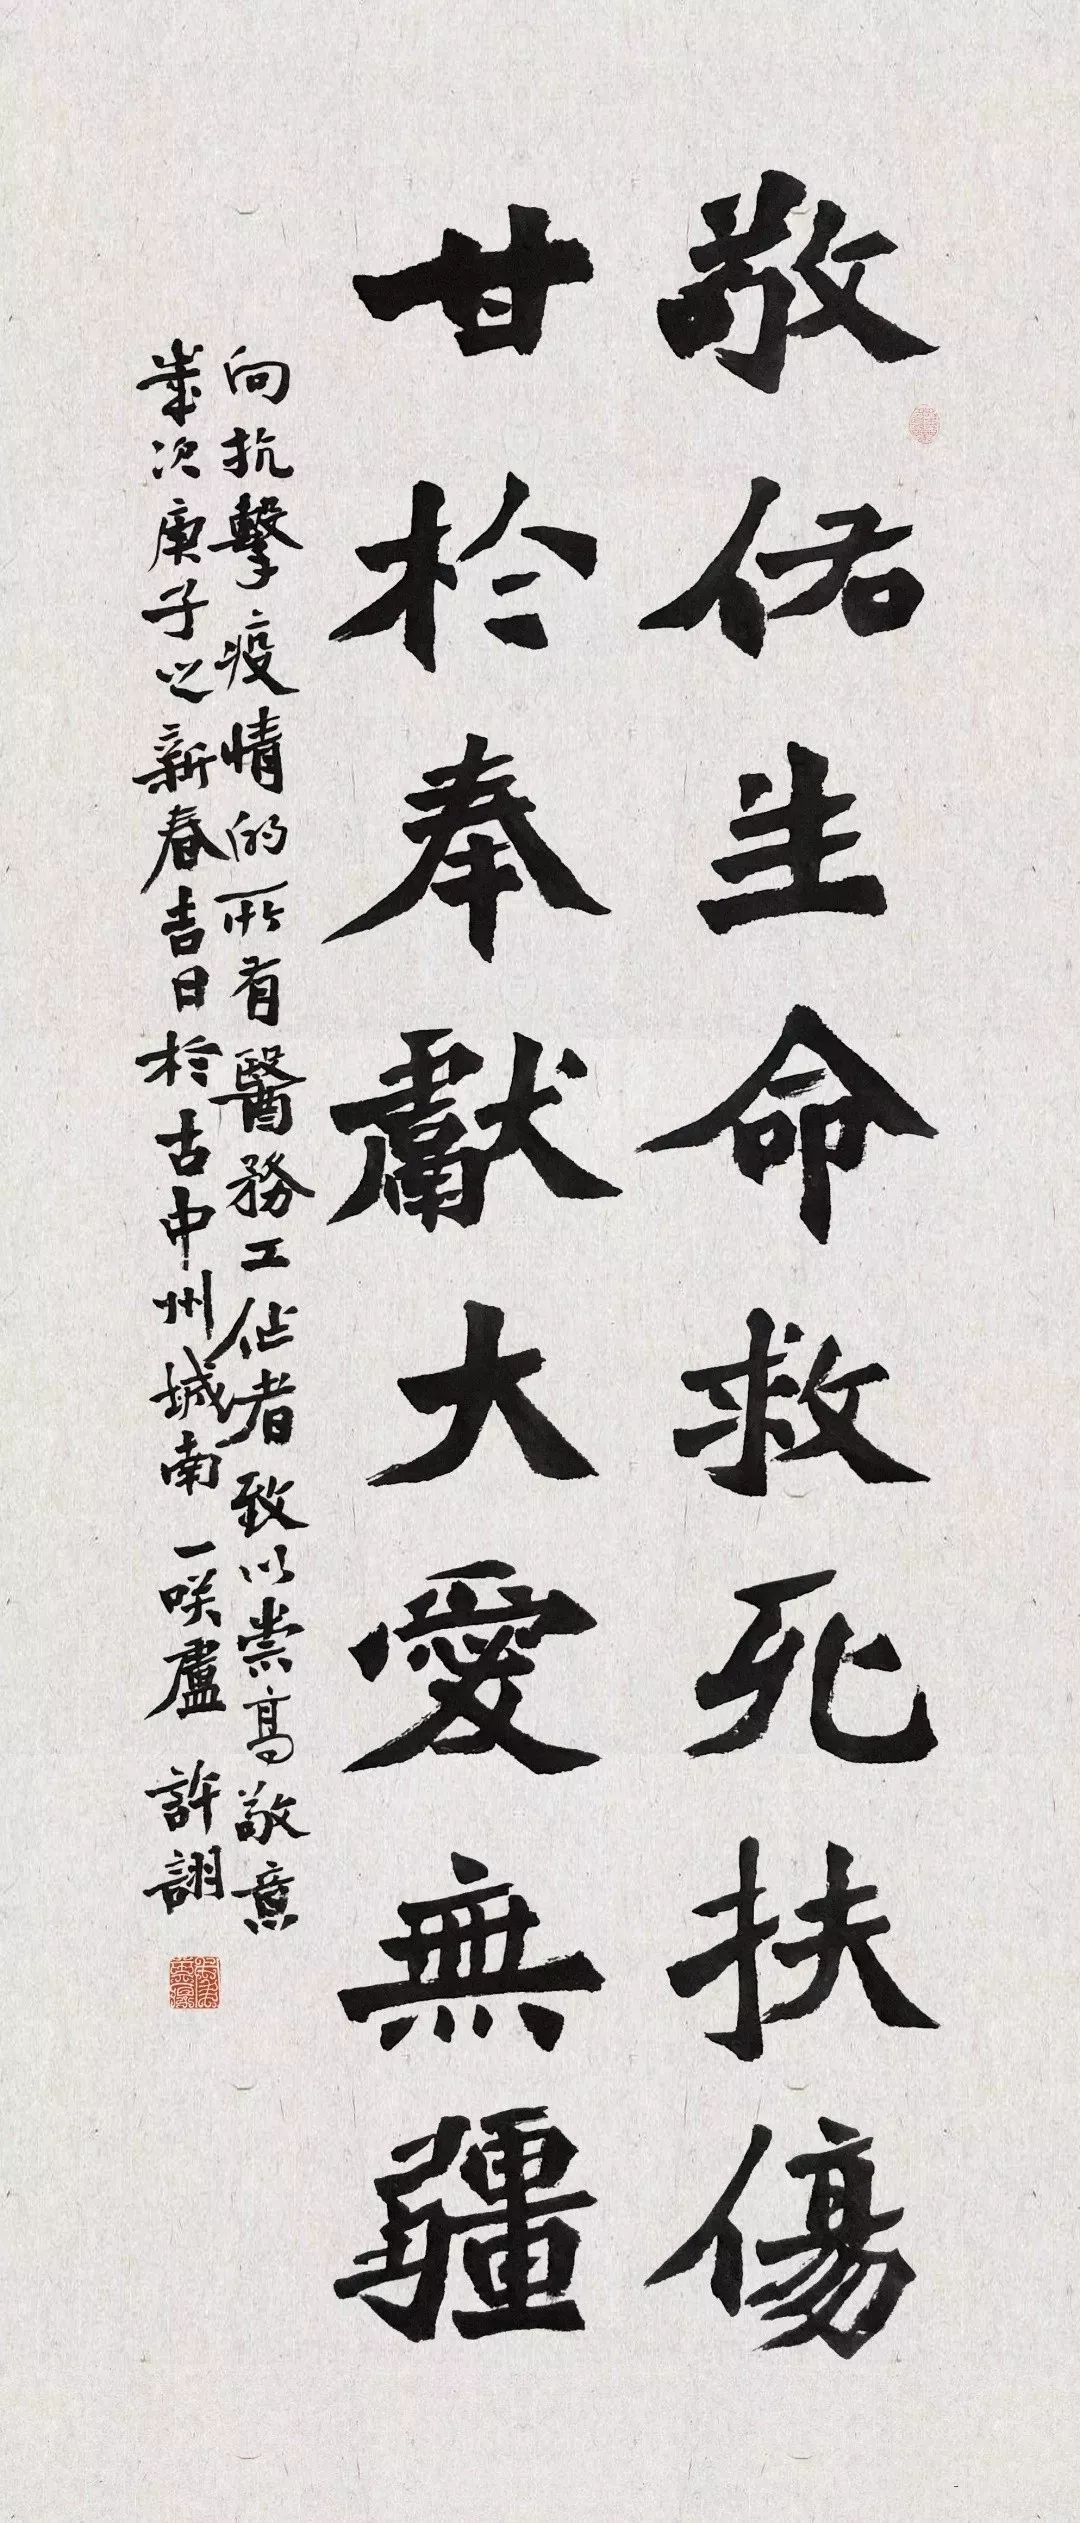 敬佑生命救死扶傷
甘於奉獻大愛無疆
向抗擊疫情的所有醫務工作者致以崇高敬意
歲次庚子之新春吉日於古中州城南一咲廬 許詡